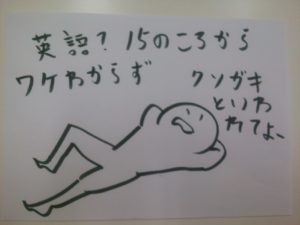 英語？15のころから
ワケわからず
クソガキ
といわ
れてよ、